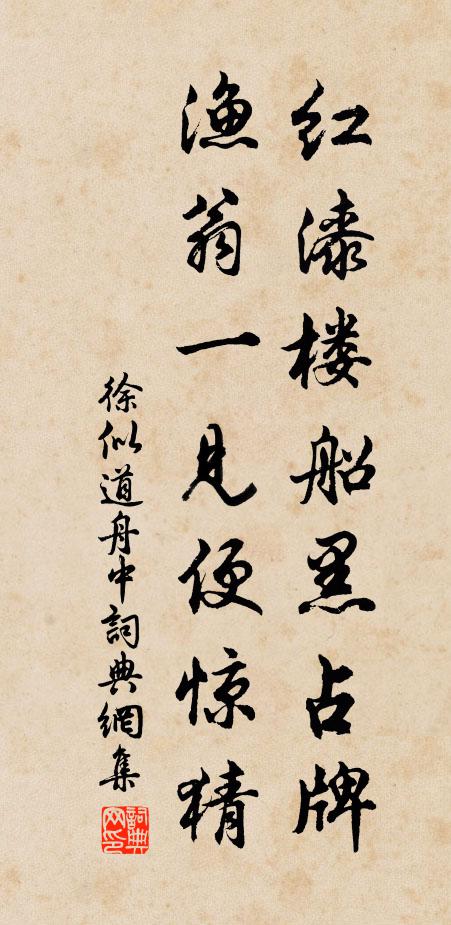 红漆楼船黑占牌
渔翁一见便惊猜
徐似道舟中詞典網集
詞典网印